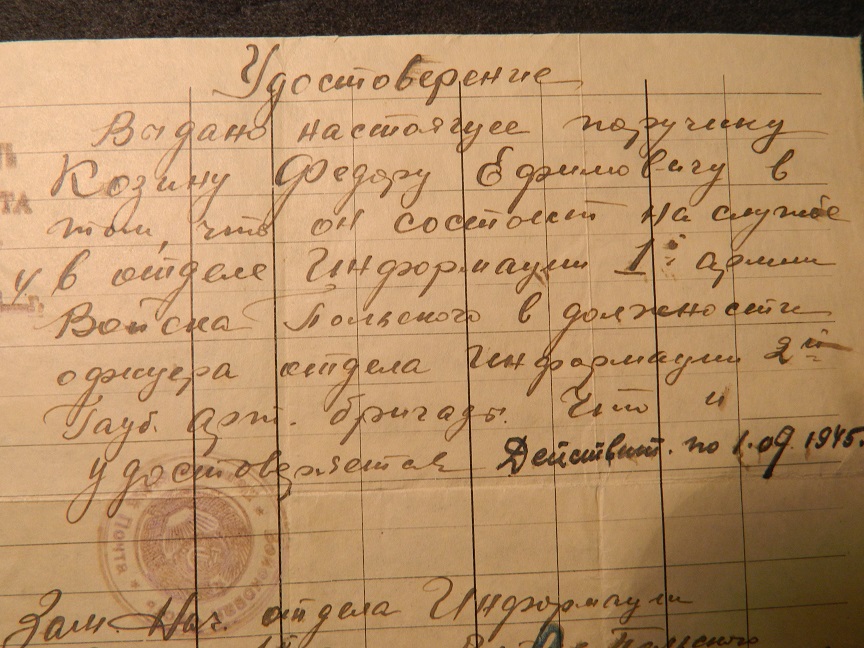 Удостоверение
Выдано настоящее поручику
Козину Федору Ефимовичу в
том, что он состоит на службе
в отделе Информации 1й армии
Войска Польского в должности
офицера отдела Информации 2й
Гауб. Арт. бригады. Что и
удостоверяется Действит. по 1.09.1945.
Зам. Нач. отдела Информации
Польского
ТА
Почта